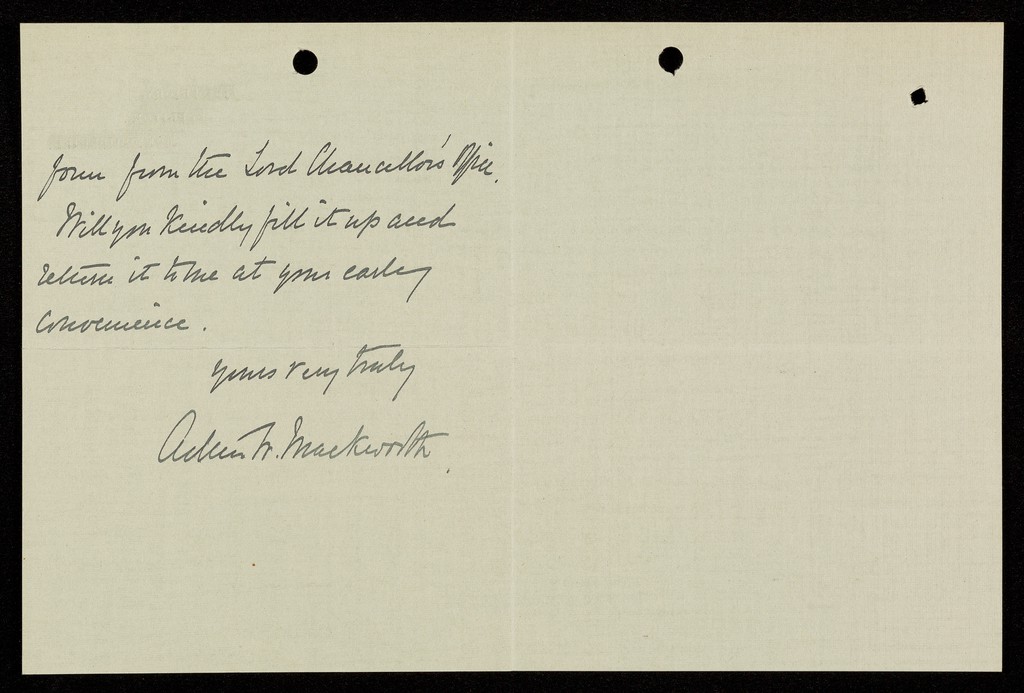 form from the Lord Chancellor's Office.
Will you kindly fill it up and
return it to me at your early
convenience.
yours very truly
W. Mackworth